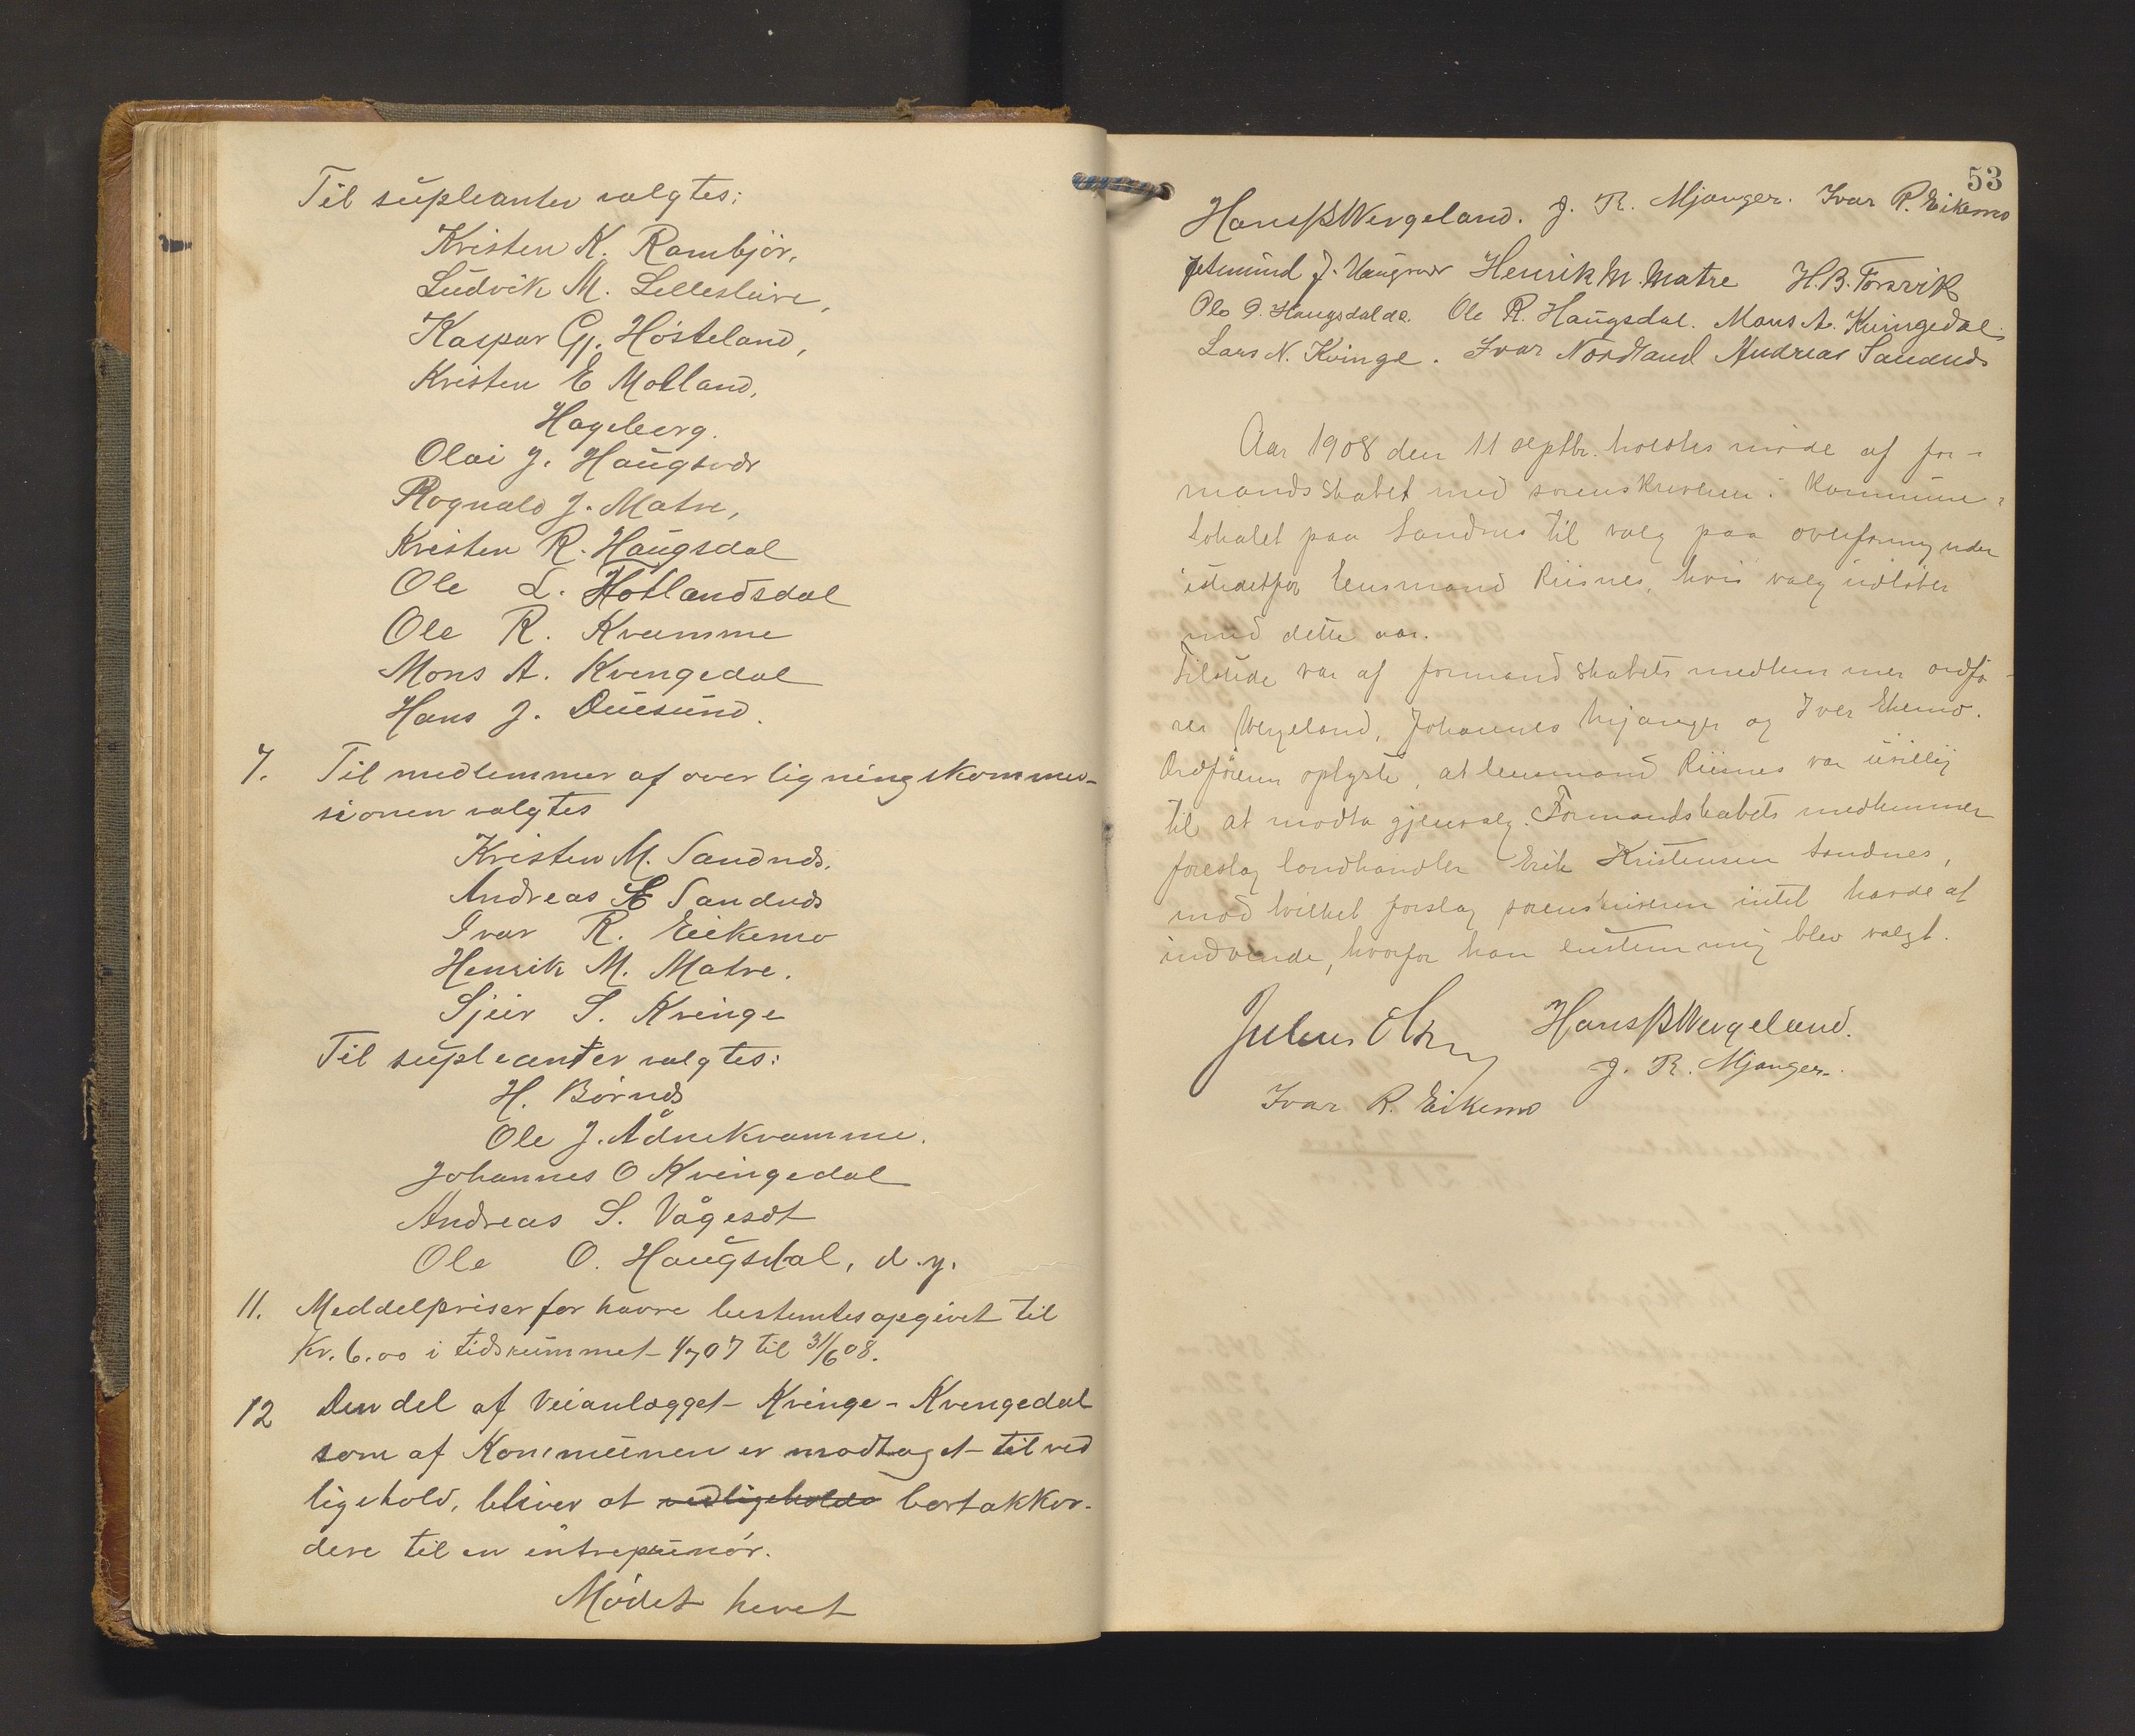 Til supleanter valgtes:
Kristen K. Rambjör,
Ludvik M. Lilleslure,
Kaspar Gj. Hösteland,
Kristen E Molland,
Hageberg.
Olai J. Haugsvær
Rognald J. Matre,
Kristen R. Haugsdal
Ole L. Hotlandsdal
Ole R. Kvamme
Mons A. Kvingedal
Hans J. Duesund.
7. Til medlemmer af overligningskommis-
sionen valgtes
Kristen M. Sandnæs.
Andreas E Sandnæs
Ivar R. Eikemo
Henrik M. Matre.
Sjur S. Kvinge
Til supleanter valgtes:
H. Börnæs
Ole J. Ådnekvamme.
Johannes O Kvingedal
Andreas S. Vågesæt
Ole O. Haugsdal, d.y.
11. Meddelpriser for havre bestemtes opgivet til
Kr. 6.00 i tidsrummet 1/7 07 til 31/6 08.
12 Den del af Veianlægget Kvinge - Kvingedal
som af Kommunen er modtaget til ved
ligehold, bliver at vedligeholde bortakkor-
dere til en intreprenör.
Mödet hevet
53
Hans B Wergeland. J. R. Mjanger. Ivar R. Eikemo
Jetmund J. Haugsvær Henrik M. Matre H. B. Torsvik
Ole O. Haugsdal d.e. Ole R. Haugsdal. Mons A. Kvingedal.
Lars N. Kvinge. Ivar Nordland Andreas Sandnæs
Aar 1908 den 11 septbr. holdtes möde af for-
mandsskabet med sorenskriveren i Kommune-
lokalet paa Sandnes til valg paa overformynder
istedetfor lensmand Riisnes, hvis valg udlöber
med dette aar.
Tilstede var af formandskabets medlemmer ordfö-
rer Wergeland, Johannes Mjanger og Iver Ekemo.
Ordföreren oplyste, at lensmand Riisnes var uvillig
til at modta gjenvalg. Formandskabets medlemmer
foreslog landhandler Erik Kristensen Sandnes,
mod hvilket forslag sorenskriveren intet havde at
indvende, hvorfor han enstemmig blev valgt.
Julius Hans B Wergeland.
J. R. Mjanger.
Ivar R. Eikemo